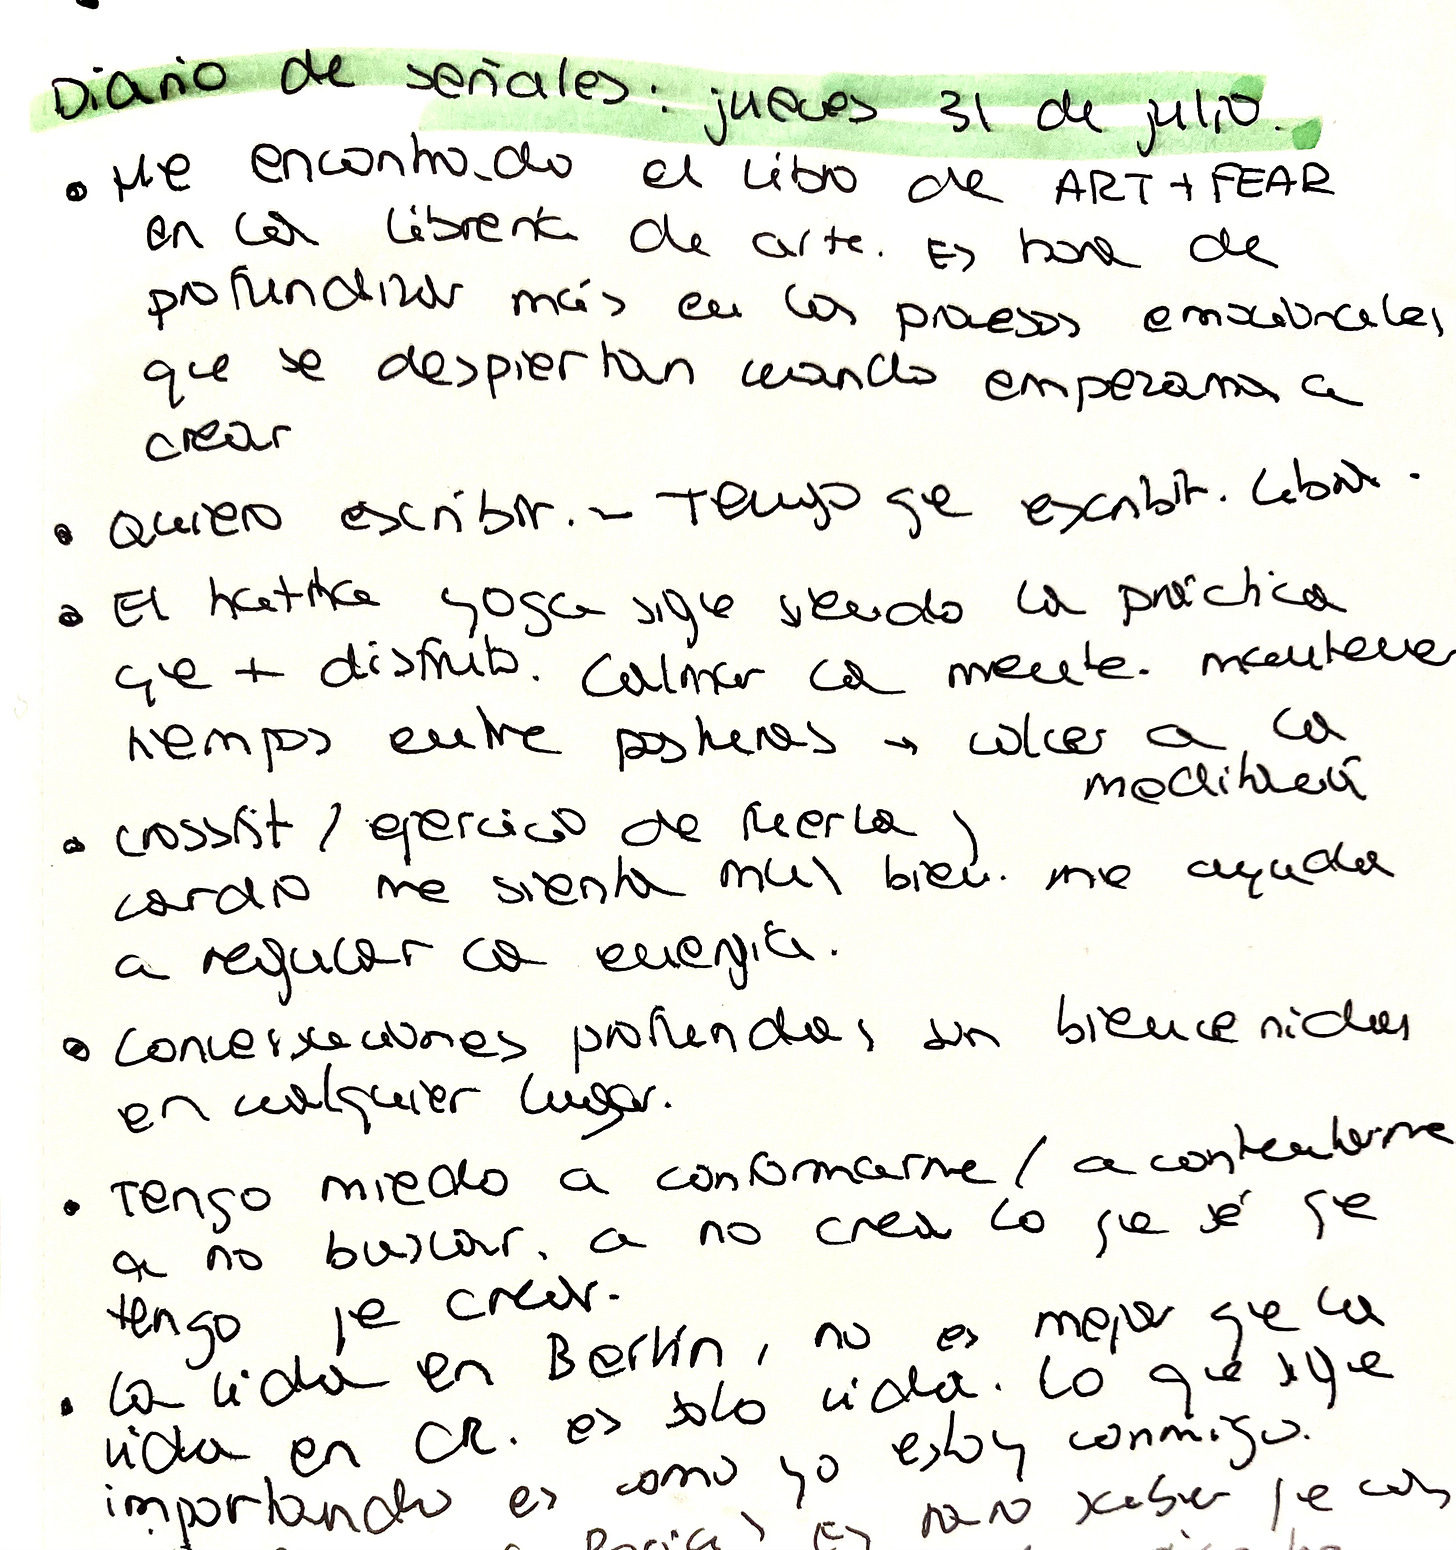 Diario de señales: jueves 31 de julio.
• He encontrado el libro de ART + FEAR
en la librería de arte. Es hora de
profundizar más en los procesos emocionales
que se despiertan cuando empezamos a
crear
• Quiero escribir. – Tengo que escribir.
• El hatha yoga sigue siendo la práctica
que + disfruto. Calmar la mente. mantener
tiempos entre posturas → volver a la
meditación
• Crossfit / ejercicio de fuerza,
cardio me sienta muy bien. me ayuda
a regular la energía.
• Conversaciones profundas, son bienvenidas
en cualquier lugar.
• Tengo miedo a conformarme / a contentarme
a no buscar, a no crear lo que sé que
tengo que crear.
• La vida en Berlín, no es mejor que la
vida en CR. es solo vida. Lo que sigue
importando es como yo estoy conmigo.
Es raro saber que